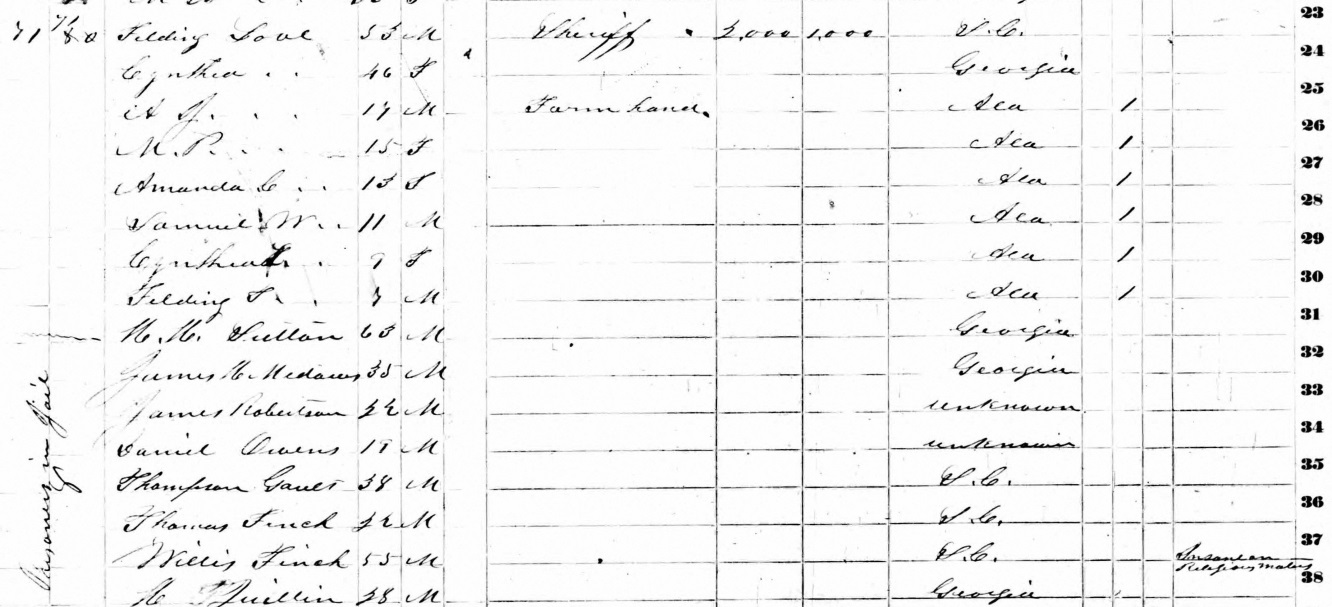 23
71 Fielding Love 53 M Sheriff 2,000 1,000 S.C.
24
Cynthia " " 46 F Georgia
25
A J. " " 17 M Farm hand. Ala 1
26
M. P. " " 15 F Ala 1
27
Amanda C " " 13 F Ala 1
28
Samuel W " " 11 M Ala 1
29
Cynthia " 9 F Ala 1
30
Fielding F. " 7 M Ala 1
31
H. H. Sutton 63 M Georgia
32
James H. Medaws 35 M Georgia
33
James Robertson 22 M unknown
34
Daniel Owens 19 M unknown
35
Thompson Gault 38 M S.C.
36
Thomas Finch 22 M S.C.
37
Willis Finch 55 M S.C. Insane on Religious Maters
38
28 M Georgia
Prisoners in Jail